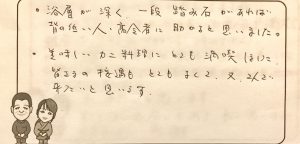 ・浴層が深く、一段踏み石があれば
背の低い人・高令者に助かると思いました。
・美味しいカニ料理にとても満喫しました。
皆さまの待遇もとてもよくて、又、2人で
来たいと思います。